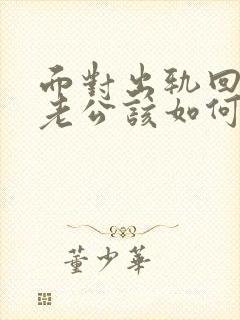 面對出軌回
老公該如何
董少華